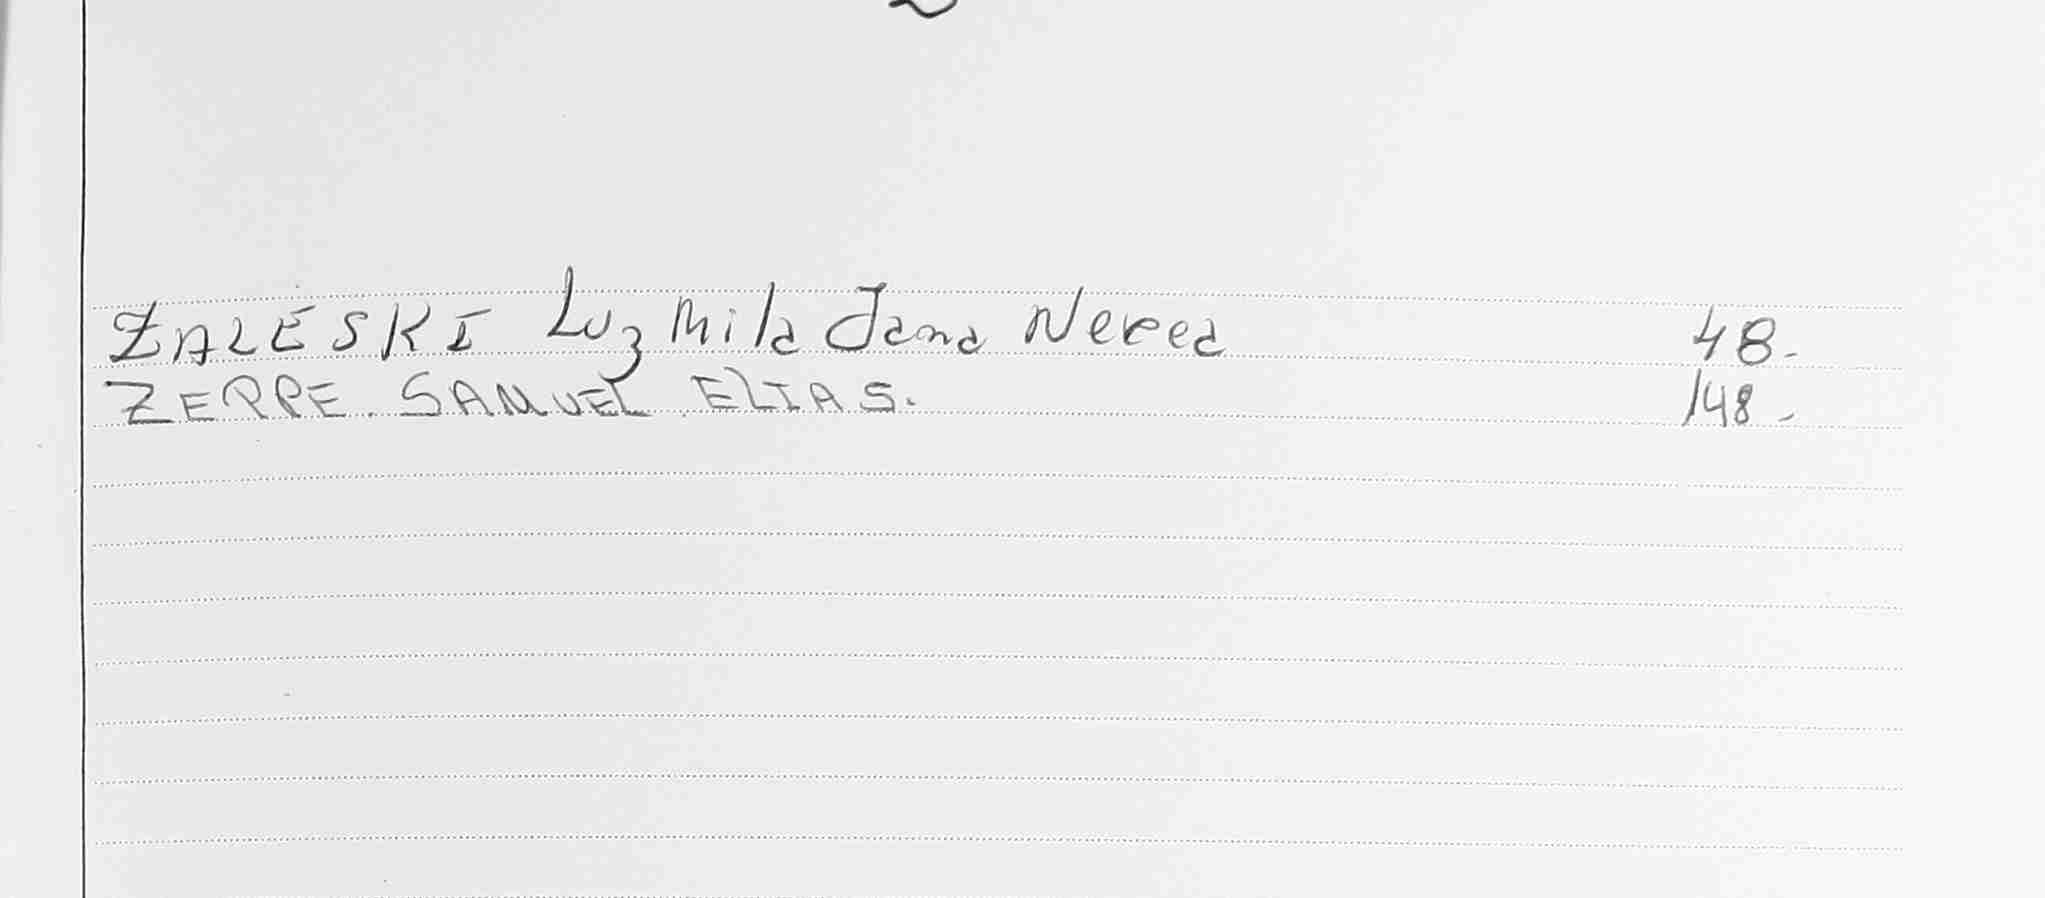 ZALESKI Luz Mila Jana Nerea 48.-
ZERPE. SAMUEL ELIAS. 148.-